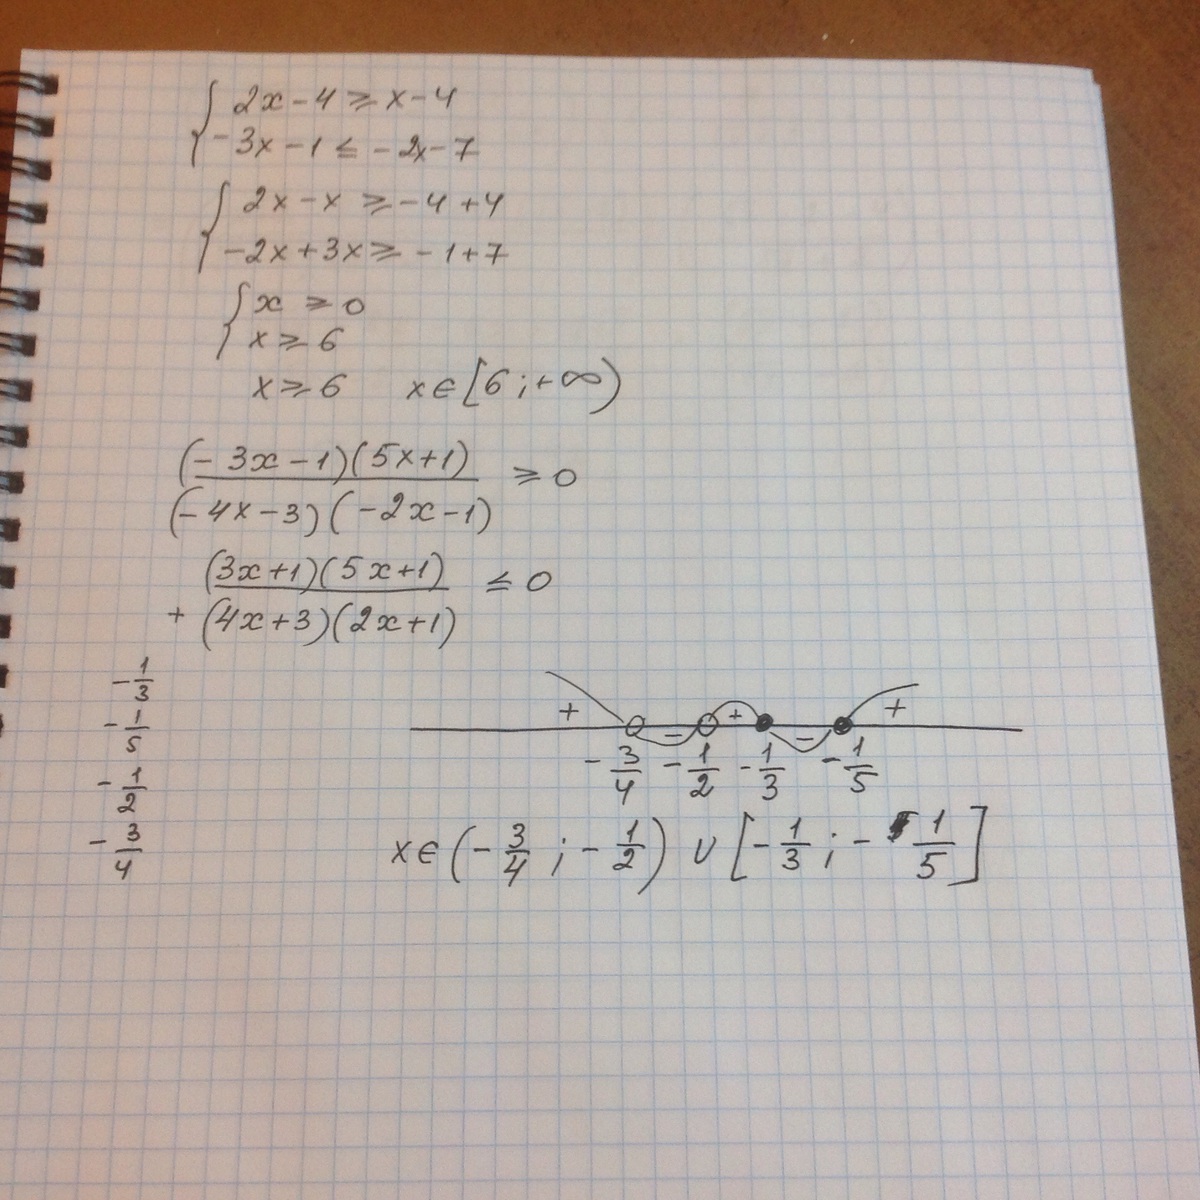 { 2x - 4 ≥ x - 4
- 3x - 1 ≤ - 2x - 7
{ 2x - x ≥ - 4 + 4
- 2x + 3x ≥ - 1 + 7
{ x ≥ 0
x ≥ 6
x ≥ 6 x ∈ [6 ; +∞)
(- 3x - 1)(5x + 1) / (- 4x - 3)(- 2x - 1) ≥ 0
+ (3x + 1)(5x + 1) / (4x + 3)(2x + 1) ≤ 0
- 1/3
- 1/5
- 1/2
- 3/4
+ - + - +
- 3/4 - 1/2 - 1/3 - 1/5
x ∈ (- 3/4 ; - 1/2) ∪ [- 1/3 ; - 1/5]